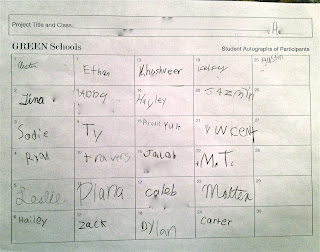 Project Title and Class:
GREEN Schools Student Autographs of Participants
Ethan Khushveer Austin
Tina Abby Hayley JAZmin
Sadie Ty vincent
Ryan travers Jacob M.T.
Leslie Diana caleb
Hailey zack Dylan carter